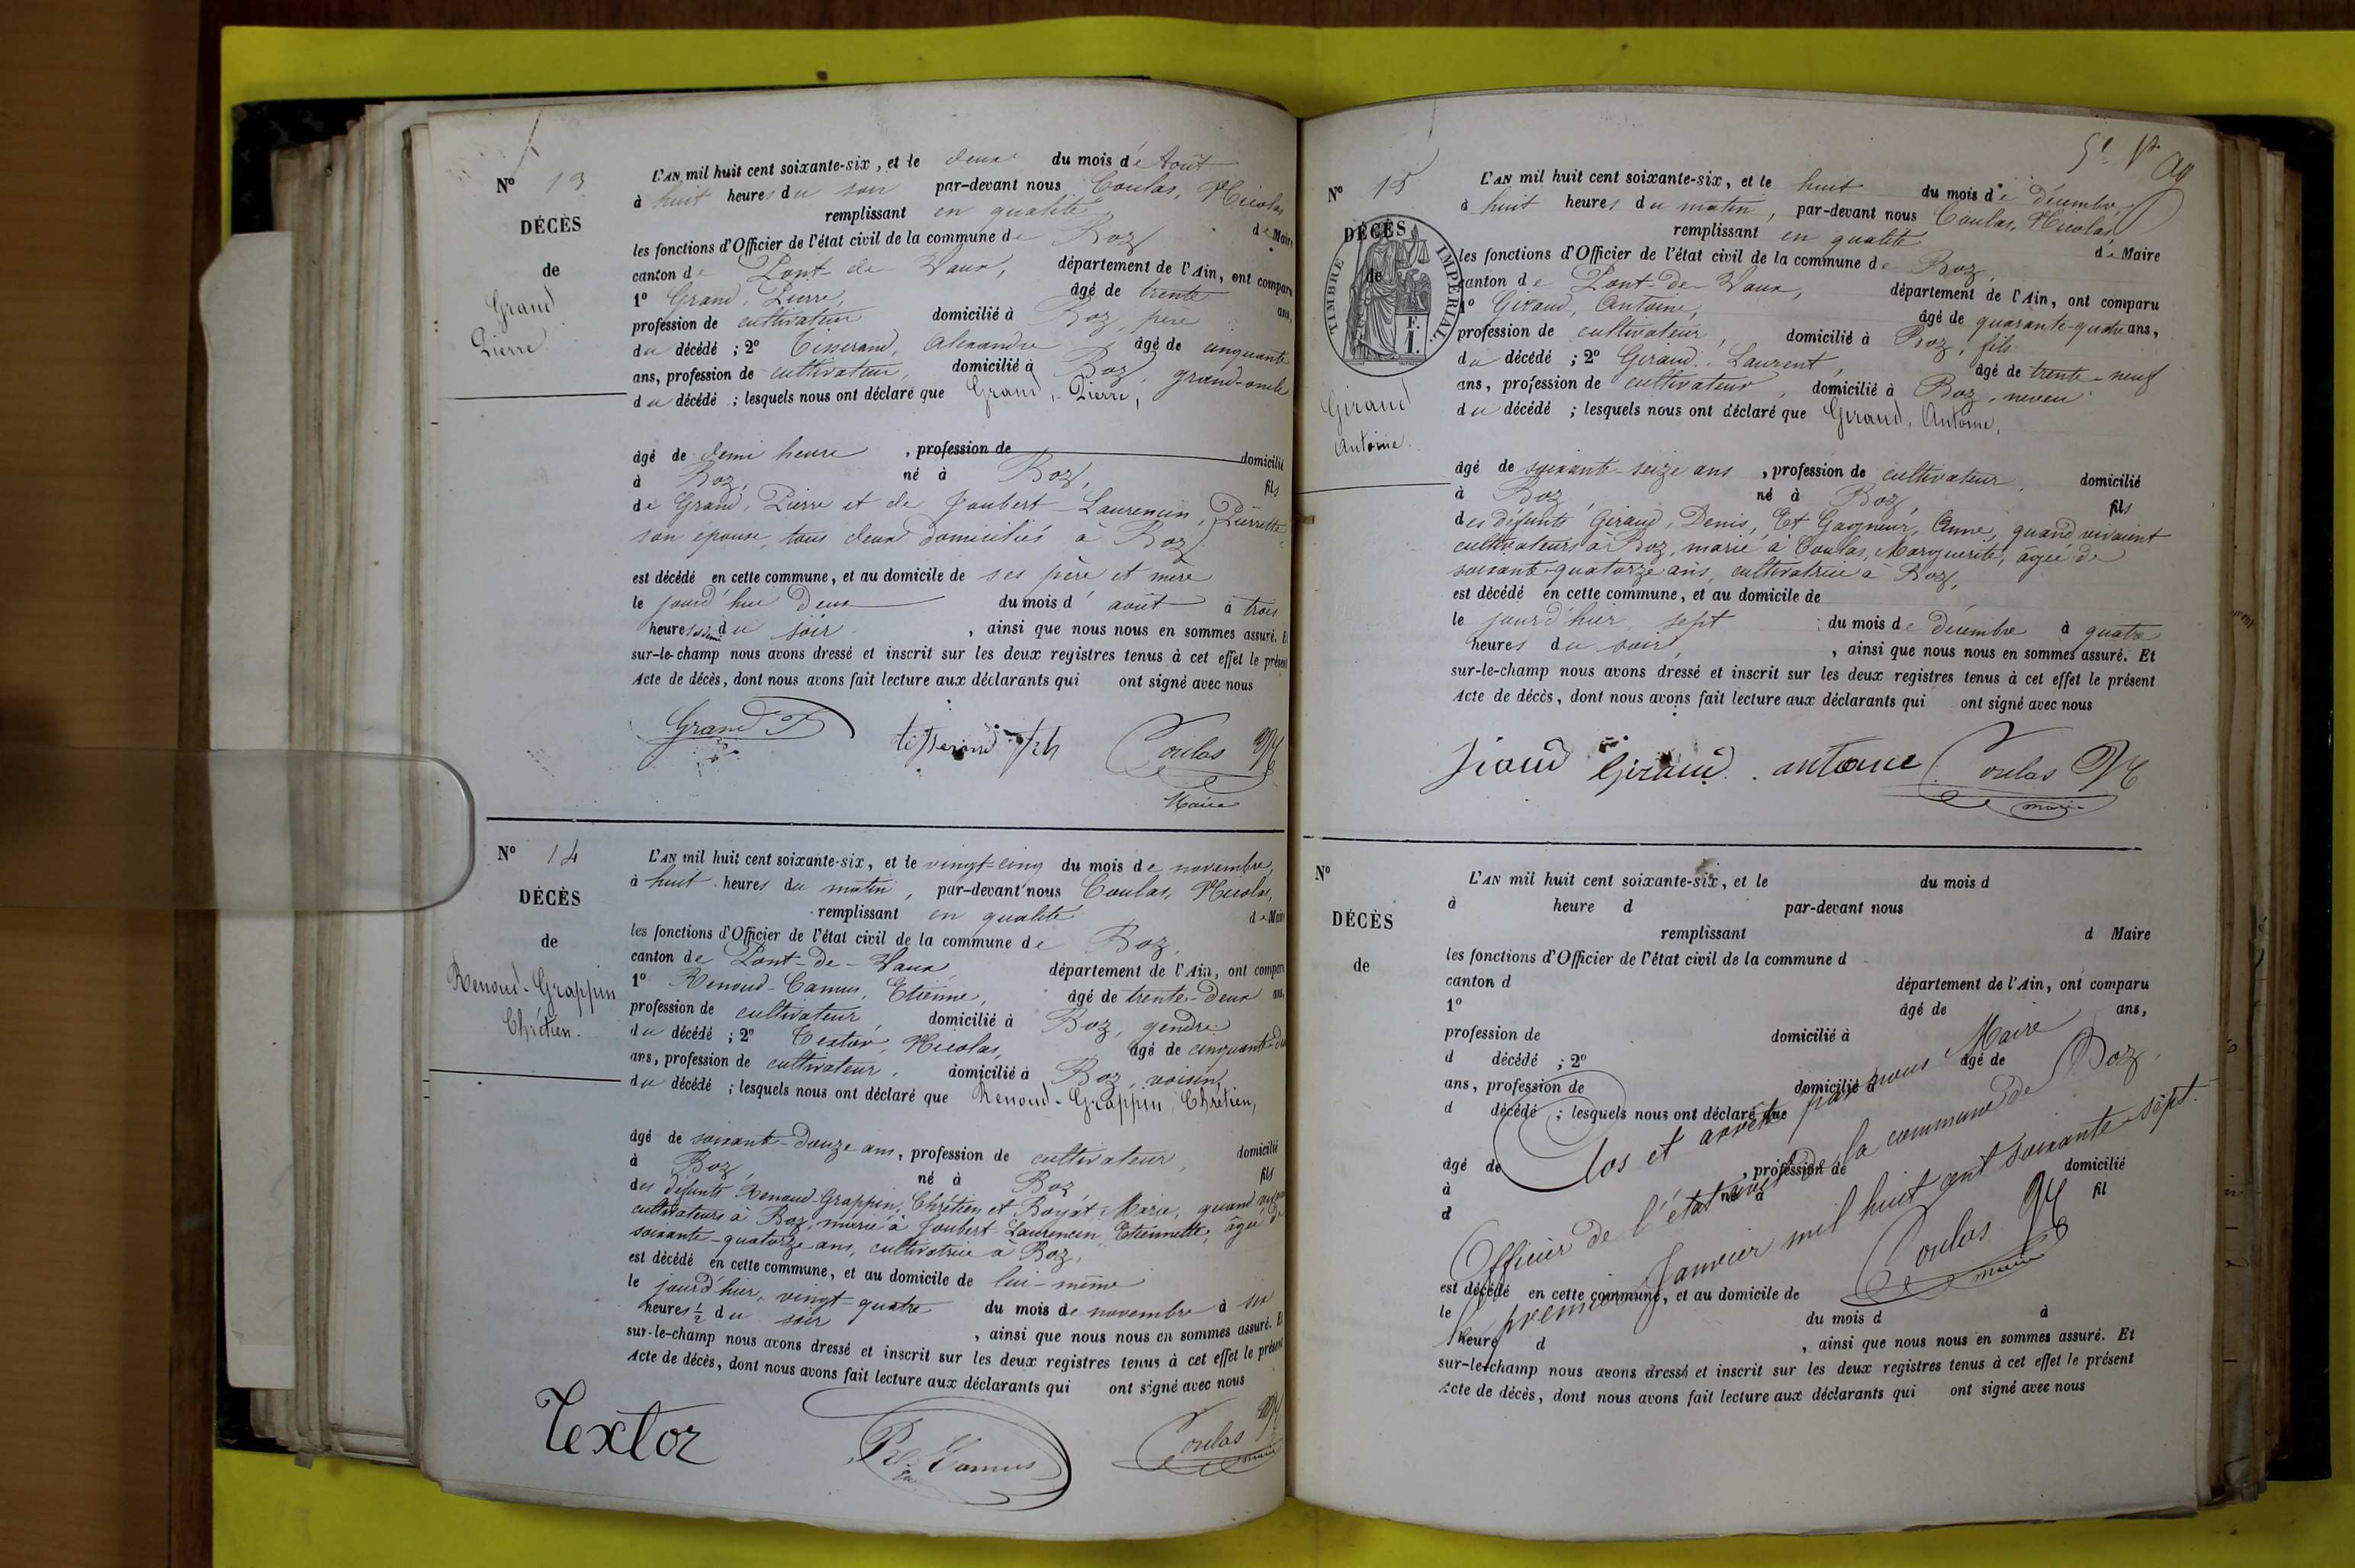 N° 13
DÉCÈS
de
Grand
Pierre
L'AN mil huit cent soixante-six, et le deux du mois de Août
à huit heures du soir par-devant nous Coulas, Nicolas
remplissant en qualité de Maire
les fonctions d'Officier de l'état civil de la commune de Boz
canton de Pont-de-Vaux, département de l'Ain, ont comparu
1° Grand, Pierre, âgé de trente ans,
profession de cultivateur domicilié à Boz, père
du décédé ; 2° Tisserand, Alexandre âgé de cinquante
ans, profession de cultivateur, domicilié à Boz, grand-oncle
du décédé ; lesquels nous ont déclaré que Grand, Pierre,
âgé de demi heure, profession de domicilié
à Boz, né à Boz, fils
de Grand, Pierre et de Joubert-Laurencin, Pierrette
son épouse, tous deux domiciliés à Boz
est décédé en cette commune, et au domicile de ses père et mère
le jourd'hui deux du mois d'août à trois
heures et demi du soir, ainsi que nous nous en sommes assuré. Et
sur-le-champ nous avons dressé et inscrit sur les deux registres tenus à cet effet le présent
Acte de décès, dont nous avons fait lecture aux déclarants qui ont signé avec nous
Grand P
tisserand
Coulas N
Maire
N° 14
DÉCÈS
de
Renoud-Grappin
Chrétien.
L'AN mil huit cent soixante-six, et le vingt-cinq du mois de novembre,
à huit heures du matin, par-devant nous Coulas, Nicolas,
remplissant en qualité de Maire
les fonctions d'Officier de l'état civil de la commune de Boz,
canton de Pont-de-Vaux, département de l'Ain, ont comparu
1° Renoud-Camus, Etienne, âgé de trente-deux ans,
profession de cultivateur, domicilié à Boz, gendre
du décédé ; 2° Textor, Nicolas, âgé de cinquante-
ans, profession de cultivateur, domicilié à Boz, voisin
du décédé ; lesquels nous ont déclaré que Renoud-Grappin, Chrétien,
âgé de soixante-douze ans, profession de cultivateur, domicilié
à Boz, né à Boz fils
des défunts Renoud-Grappin, Chrétien et Boyat, Marie, quand vivaient
cultivateurs à Boz, marié à Joubert-Laurencin, Etiennette, âgée de
soixante-quatorze ans, cultivatrice à Boz,
est décédé en cette commune, et au domicile de lui-même
le jourd'hier, vingt-quatre du mois de novembre à six
heures ½ du soir, ainsi que nous nous en sommes assuré. Et
sur-le-champ nous avons dressé et inscrit sur les deux registres tenus à cet effet le présent
Acte de décès, dont nous avons fait lecture aux déclarants qui ont signé avec nous
Textor
Rd Camus
Coulas N
maire
N° 15
DÉCÈS
de
TIMBRE IMPÉRIAL.
F.
I.
Giraud
Antoine.
L'AN mil huit cent soixante-six, et le huit du mois de décembre,
à huit heures du matin, par-devant nous Coulas, Nicolas,
remplissant en qualité de Maire
les fonctions d'Officier de l'état civil de la commune de Boz,
canton de Pont-de-Vaux, département de l'Ain, ont comparu
1° Giraud, Antoine, âgé de quarante-quatre ans,
profession de cultivateur, domicilié à Boz, fils
du décédé ; 2° Giraud, Laurent, âgé de trente-neuf
ans, profession de cultivateur, domicilié à Boz, neveu
du décédé ; lesquels nous ont déclaré que Giraud, Antoine,
âgé de soixante-seize ans, profession de cultivateur, domicilié
à Boz, né à Boz, fils
des défunts Giraud, Denis, Et Gagneur, Anne, quand vivaient
cultivateurs à Boz, marié à Coulas, Marguerite, âgée de
soixante-quatorze ans, cultivatrice à Boz,
est décédé en cette commune, et au domicile de
le jourd'hier sept du mois de décembre à quatre
heures du soir, ainsi que nous nous en sommes assuré. Et
sur-le-champ nous avons dressé et inscrit sur les deux registres tenus à cet effet le présent
Acte de décès, dont nous avons fait lecture aux déclarants qui ont signé avec nous
Giraud Antoine Coulas N
maire
N°
DÉCÈS
de
L'AN mil huit cent soixante-six, et le du mois d
à heure d par-devant nous
remplissant d Maire
les fonctions d'Officier de l'état civil de la commune d
canton d département de l'Ain, ont comparu
1° âgé de ans,
profession de domicilié à
d décédé ; 2° âgé de
ans, profession de domicilié à
d décédé ; lesquels nous ont déclaré que
âgé de , profession de domicilié
à né à fil
d
Clos et arrêté par nous Maire
Officier de l'état civil de la commune de Boz,
le premier Janvier mil huit cent soixante-sept.
Coulas N
maire
est décédé en cette commune, et au domicile de
le du mois d à
heure d , ainsi que nous nous en sommes assuré. Et
sur-le-champ nous avons dressé et inscrit sur les deux registres tenus à cet effet le présent
Acte de décès, dont nous avons fait lecture aux déclarants qui ont signé avec nous